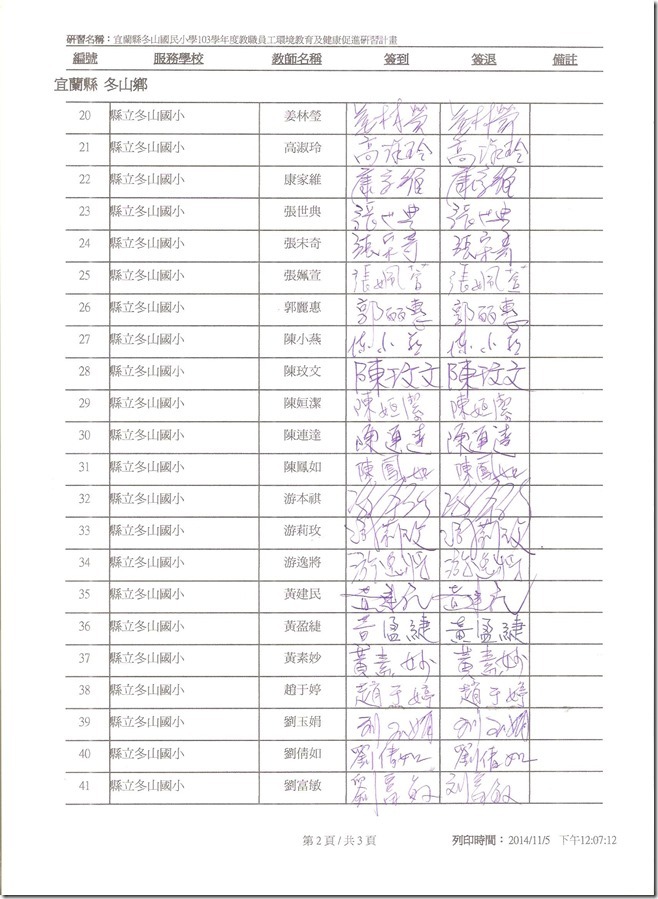 研習名稱：宜蘭縣冬山國民小學103學年度教職員工環境教育及健康促進研習計畫
編號 服務學校 教師名稱 簽到 簽退 備註
宜蘭縣 冬山鄉
20 縣立冬山國小 姜林瑩 姜林瑩 姜林瑩
21 縣立冬山國小 高淑玲 高淑玲 高淑玲
22 縣立冬山國小 康家維 康家維 康家維
23 縣立冬山國小 張世典 張世典 張世典
24 縣立冬山國小 張宋奇 張宋奇 張宋奇
25 縣立冬山國小 張姵萱 張姵萱 張姵萱
26 縣立冬山國小 郭麗惠 郭麗惠 郭麗惠
27 縣立冬山國小 陳小燕 陳小燕 陳小燕
28 縣立冬山國小 陳玟文 陳玟文 陳玟文
29 縣立冬山國小 陳姮潔 陳姮潔 陳姮潔
30 縣立冬山國小 陳連達 陳連達 陳連達
31 縣立冬山國小 陳鳳如 陳鳳如 陳鳳如
32 縣立冬山國小 游本祺
33 縣立冬山國小 游莉玫 游莉玫 游莉玫
34 縣立冬山國小 游逸將 游逸將 游逸將
35 縣立冬山國小 黃建民 黃建民 黃建民
36 縣立冬山國小 黃盈緁 黃盈緁 黃盈緁
37 縣立冬山國小 黃素妙 黃素妙 黃素妙
38 縣立冬山國小 趙于婷 趙于婷 趙于婷
39 縣立冬山國小 劉玉娟 刘玉娟 刘玉娟
40 縣立冬山國小 劉倩如 劉倩如 劉倩如
41 縣立冬山國小 劉富敏 劉富敏 刘富敏
第 2 頁 / 共 3 頁 列印時間：2014/11/5 下午12:07:12